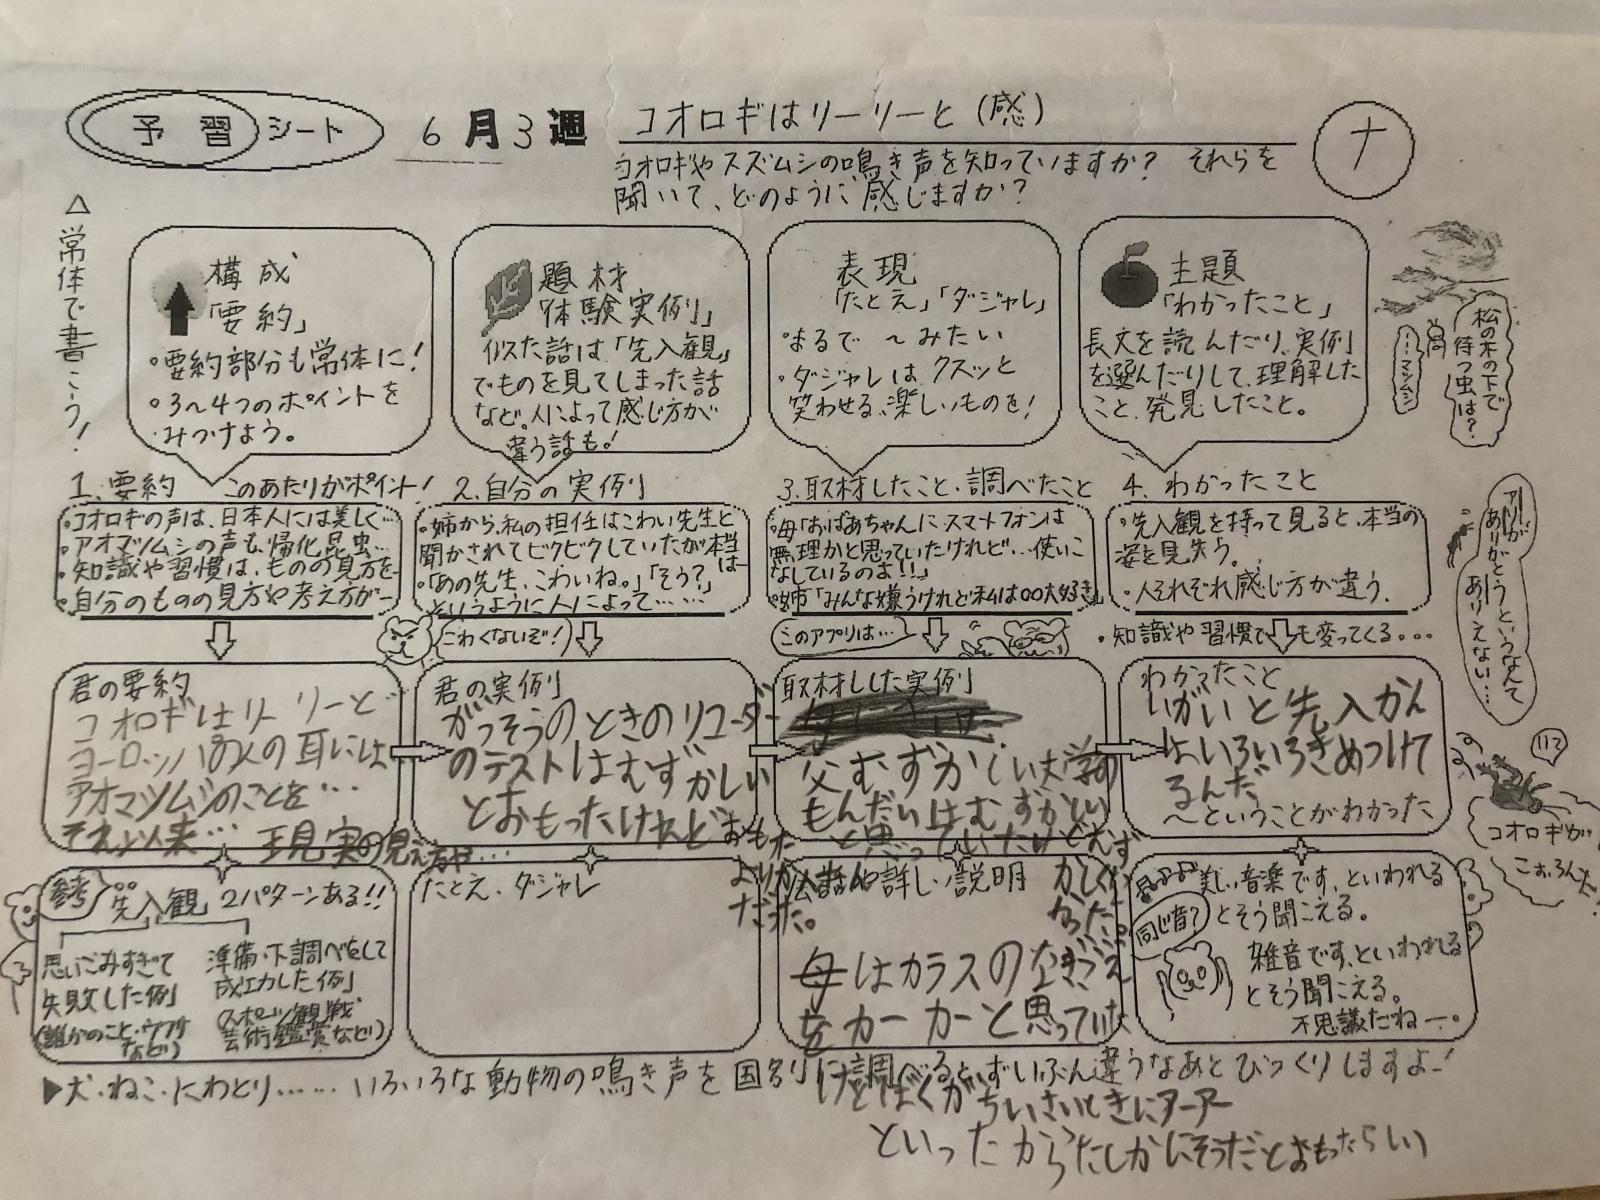 予習シート
6月3週
コオロギはリーリーと(感)
ナ
コオロギやスズムシの鳴き声を知っていますか? それらを
聞いて、どのように感じますか?
△常体で書こう!
構成
「要約」
・要約部分も常体に!
・3〜4つのポイントを
みつけよう。
題材
「体験実例」
似た話は「先入観」
でものを見てしまった話
など。人によって感じ方が
違う話も!
表現
「たとえ」「ダジャレ」
・まるで〜みたい
・ダジャレは、クスッと
笑わせる、楽しいものを!
主題
「わかったこと」
長文を読んだり、実例
を選んだりして、理解した
こと、発見したこと。
松の木の下で
待つ虫は?
…マツムシ
1.要約 このあたりがポイント!
・コオロギの声は、日本人には美しく…
・アオマツムシの声も、帰化昆虫…
・知識や習慣は、ものの見方を…
・自分のものの見方や考え方が…
2.自分の実例
・姉から、私の担任はこわい先生と
聞かされてビクビクしていたが本当は…
・「あの先生、こわいね。」「そう?」
というように人によって……
こわくないぞ!
3.取材したこと・調べたこと
・母「おばあちゃんにスマートフォンは
無理かと思っていたけれど…使いこ
なしているのよ!!」
・姉「みんな嫌うけれど私は○○大好き」
このアプリは…
4.わかったこと
・先入観を持って見ると、本当の
姿を見失う。
・人それぞれ感じ方が違う。
・知識や習慣でも変ってくる…
アリが
ありがとうというなんて
ありえない…
君の要約
コオロギはリーリーと
ヨーロッパの人の耳には
アオマツムシのことを…
それ以来… 現実の見え方や…
君の実例
がっそうのときのリコーダー
のテストはむずかしい
とおもったけれどおもった
よりかん
だった。
取材した実例
父むずかしい大学の
もんだいはむずかしい
と思っていたけどむず
かしくな
かった。
わかったこと
いがいと先入かん
はいろいろきめつけて
るんだ
〜ということがわかった
コオロギが
こおろんだ!
参考
先入観 2パターンある!!
思いこみすぎて
失敗した例
(誰かのこと・ウワサ
など)
準備・下調べをして
成功した例
(スポーツ観戦
芸術鑑賞など)
たとえ、ダジャレ
会話や詳しい説明
母はカラスのなきごえ
をカーカーと思っていた
けどぼくがちいさいときにアーアー
といったからたしかにそうだとおもったらしい
美しい音楽です、といわれる
とそう聞こえる。
同じ音?
雑音です、といわれる
とそう聞こえる。
不思議だねー。
▶犬・ねこ・にわとり……いろいろな動物の鳴き声を国別に調べると、ずいぶん違うなあとびっくりしますよ!